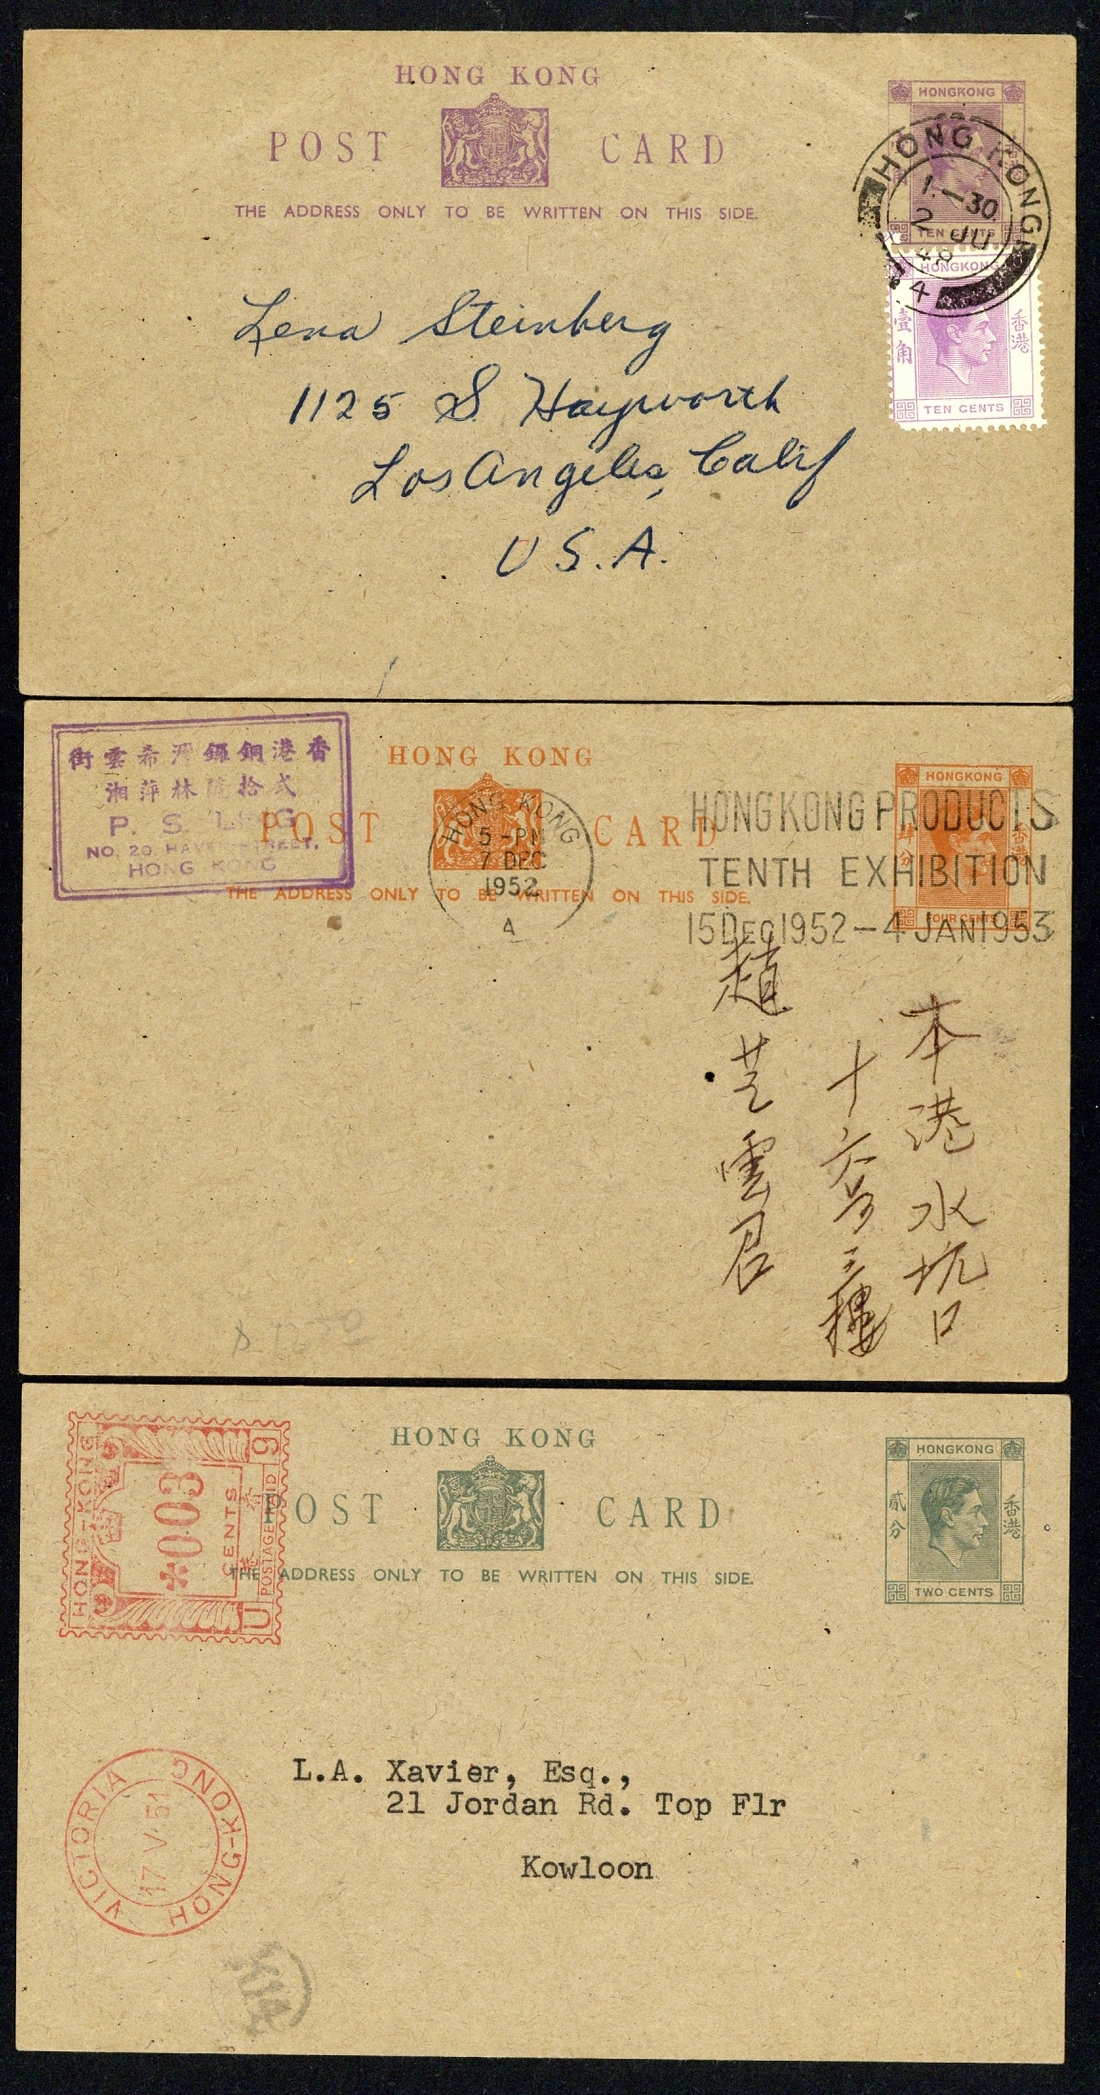 HONG KONG
POST CARD
THE ADDRESS ONLY TO BE WRITTEN ON THIS SIDE.
HONGKONG
TEN CENTS
HONG KONG
1.-30.
2 JU
48
4
HONGKONG
壹角
香港
TEN CENTS
Lena Steinberg
1125 S Hayworth
Los Angeles, Calif
U.S.A.
街雲希灣鑼銅港香
湘萍林號拾弍
P. S. LING
NO. 20, HAVEN STREET,
HONG KONG
HONG KONG
POST CARD
THE ADDRESS ONLY TO BE WRITTEN ON THIS SIDE.
HONG KONG
5-PM
7 DEC
1952
A
HONGKONG
FOUR CENTS
HONGKONG PRODUCTS
TENTH EXHIBITION
15 DEC 1952-4 JAN 1953
本港水坑口
十六号三樓
趙芝雲君
HONG-KONG
*003
CENTS
POSTAGE PAID
U 9
HONG KONG
POST CARD
THE ADDRESS ONLY TO BE WRITTEN ON THIS SIDE.
HONGKONG
貳分
香港
TWO CENTS
VICTORIA HONG-KONG
17 V 51
L.A. Xavier, Esq.,
21 Jordan Rd. Top Flr
Kowloon